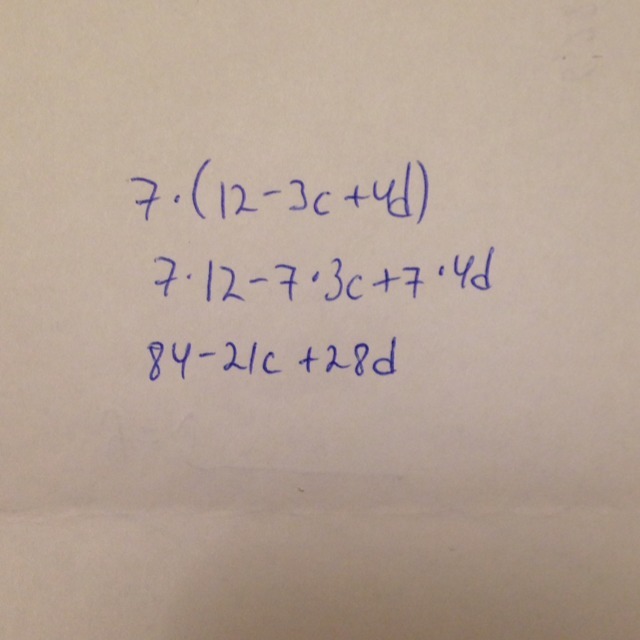 7·(12-3c+4d)
7·12-7·3c+7·4d
84-21c+28d